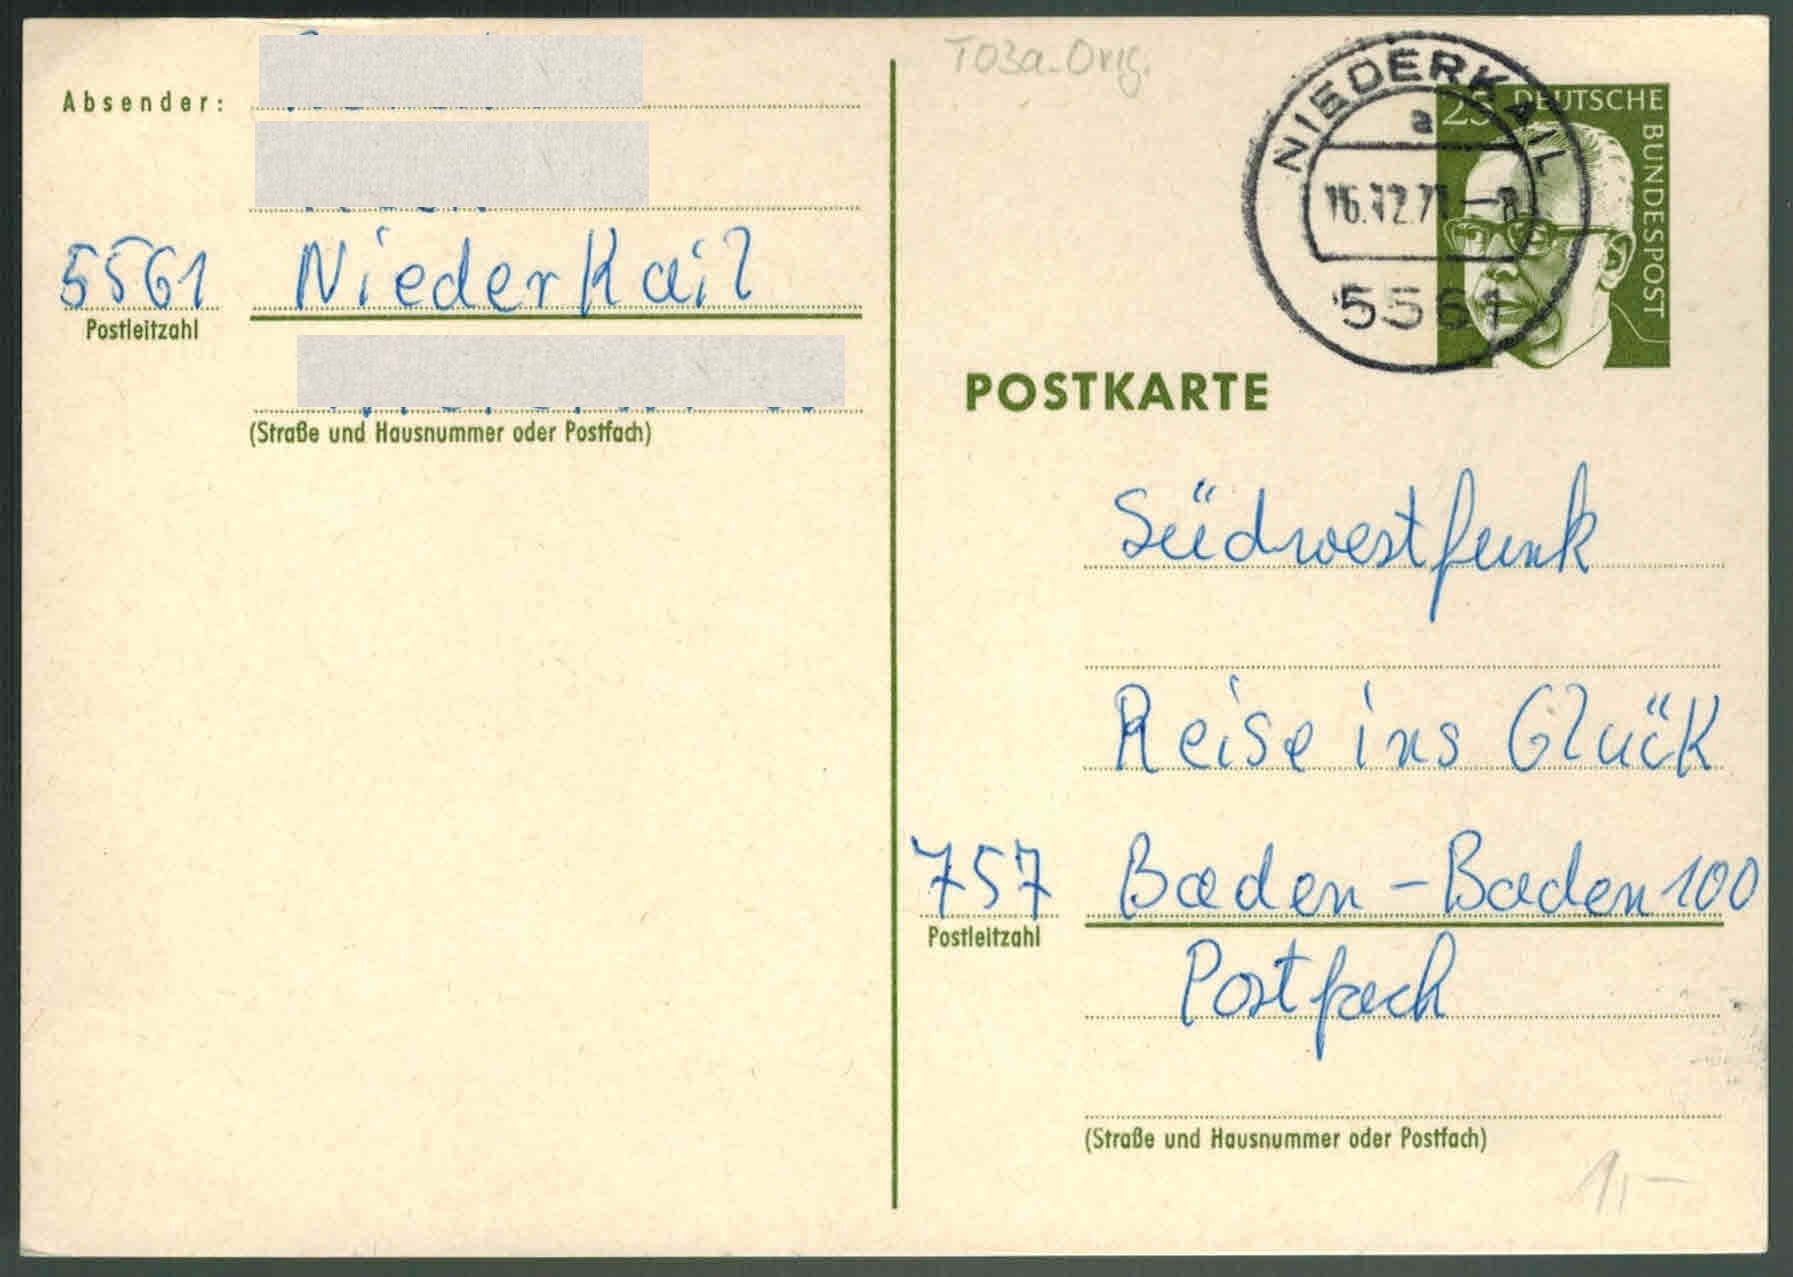 Absender:
5561 NiederKail
Postleitzahl
(Straße und Hausnummer oder Postfach)
T03a-Orig.
NIEDERKAIL
a
16.12.71-8
5561
25 DEUTSCHE
BUNDESPOST
POSTKARTE
Südwestfunk
Reise ins Glück
757 Baden-Baden 100
Postleitzahl
Postfach
(Straße und Hausnummer oder Postfach)
1,-